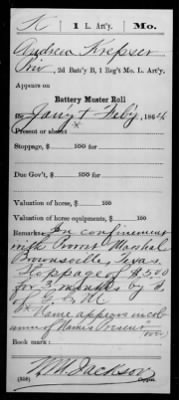 K | 1 | L. Art'y. | Mo.
Andrew Krepser
Priv, 2d Batt'y B, 1 Reg't Mo. L. Art'y.
Appears on
Battery Muster Roll
for Jany & Feby, 1865
Present or absent x
Stoppage, $ 100 for
Due Gov't, $ 100 for
Valuation of horse, $ 100
Valuation of horse equipments, $ 100
Remarks: In confinement
with Provost Marshal
Brownsville, Texas.
Stoppage of $5.00
for 3 months by
of G. C. M.
x Name appears in col-
umn of Names Present
Book mark:
W M Jackson
(358) Copyist.